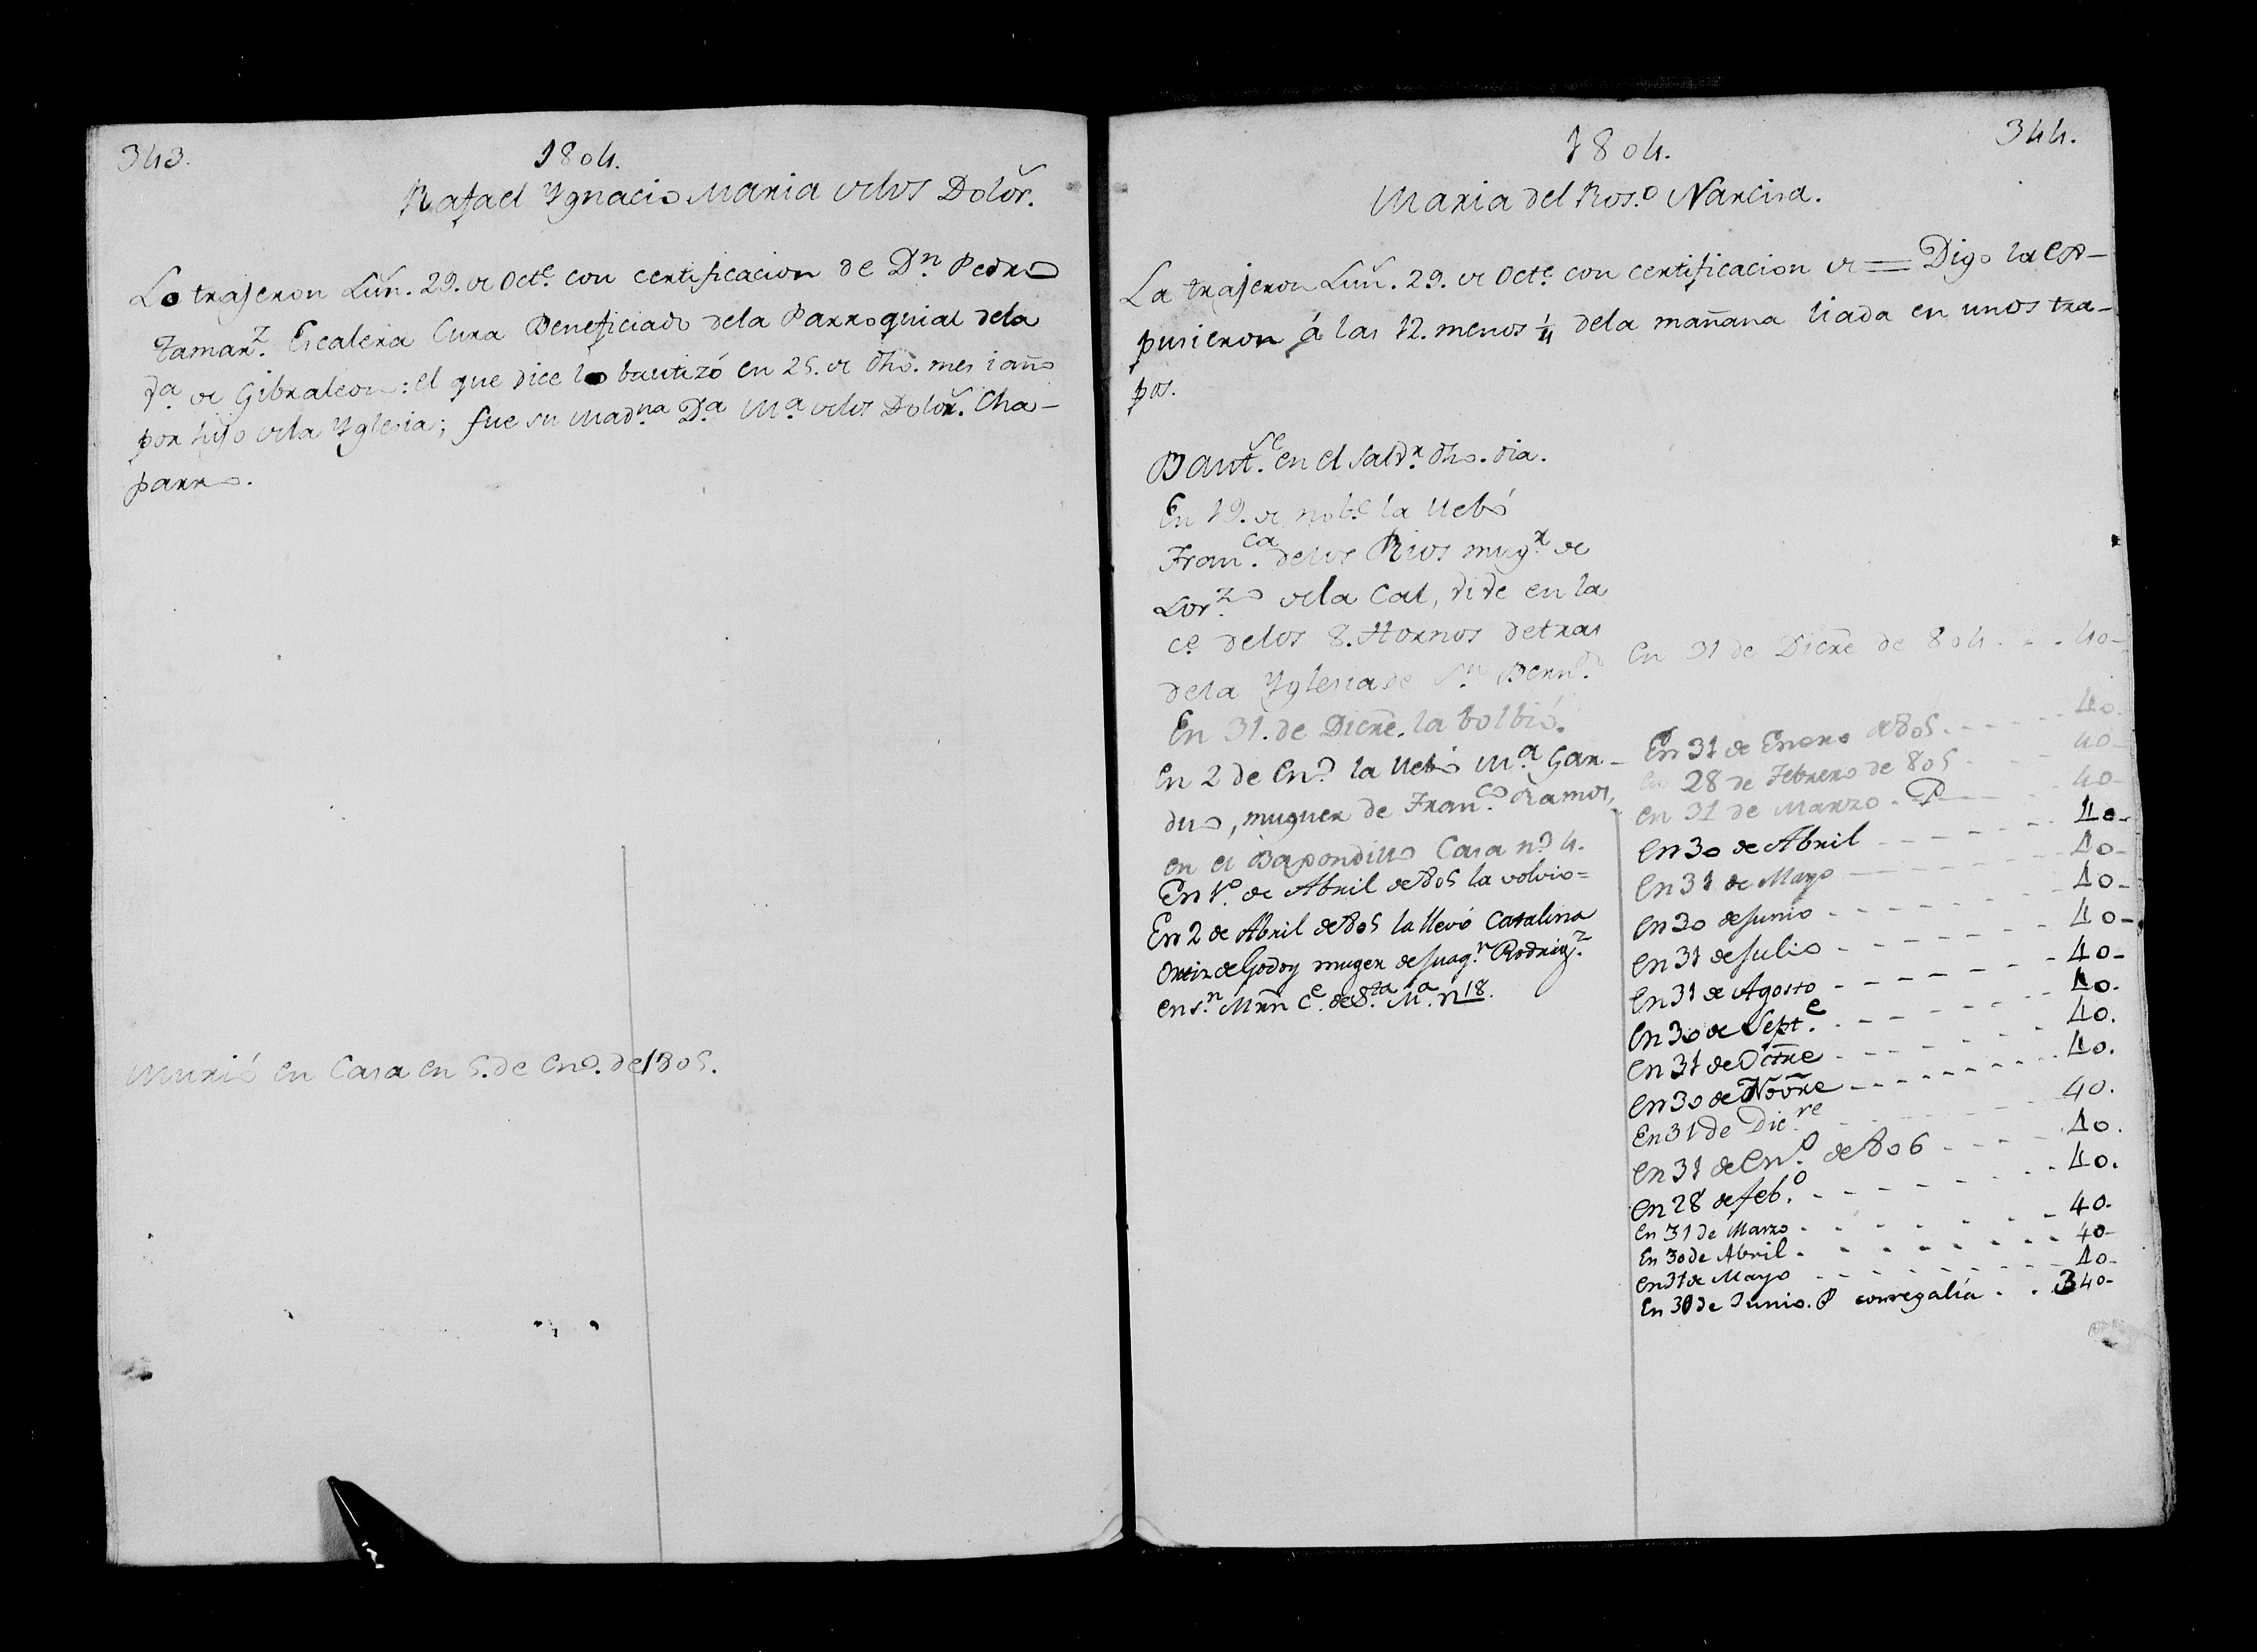 343.
1804.
Rafael Ygnacio Maria delos Dolor.
Lo trajeron Lun. 29. de Octe. con certificacion de Dn. Pedro
Tamarz. Escalera Cura Beneficiado dela Parroquial dela
Va. de Gibraleon: el que dice lo bautizó en 25. de dho. mes i año
por hijo dela Yglesia; fue su Madna. Da. Ma. delos Dolor. Cha-
parro.
Murió en Casa en 5. de Eno. de 1805.
344.
1804.
Maria del Ros.o Narcisa.
La trajeron Lun. 29. de Octe. con certificacion de = Digo la es-
pusieron á las 12. menos 1/4 dela mañana liada en unos tra-
pos.
Baut.se en el Salvr. dho. dia.
En 19. de nobe. la llebó
Franca. delos Rios mugr. de
Lorzo. dela Cal, vive en la
ce. delos 8. Hornos detras
dela Yglesia de Sn. Berndo.
En 31. de Dicre. la bolbió.
En 2 de Eno. la llebó Ma. Gar-
duo, muguer de Franco. Ramos,
en el Bapondillo Casa no. 4.
En 1o. de Abril de 805 la volvio=
En 2 de Abril de 805 la llevó Catalina
Ortiz de Godoy muger de Juaqn. Rodrigz.
en Sn. Mrn Ce. de Sta. Ma. n 18.
En 31 de Dicre de 804 . . . 40-
En 31 de Enero de 805. - - - - - 40-
En 28 de Febrero de 805 - - - 40-
en 31 de Marzo. P - - - 40-
en 30 de Abril - - - - - 40-
en 31 de Mayo - - - - - 40-
en 30 de Junio - - - - - - 40-
en 31 de Julio - - - - - - 40-
en 31 de Agosto - - - - - - 40-
en 30 de Septe. - - - - - - 40.
en 31 de Octre - - - - - - 40.
en 30 de Novre - - - - - - 40.
En 31 de Dicre. - - - - - - 40.
en 31 de Eno. de 806 - - - - 40.
en 28 de Febo. - - - - - - 40.
En 31 de Marzo . - - - - - - 40-
En 30 de Abril . - - - - - - 40-
en 31 de Mayo - - - - - - 40-
En 30 de Junio. P con regalía . . 340-